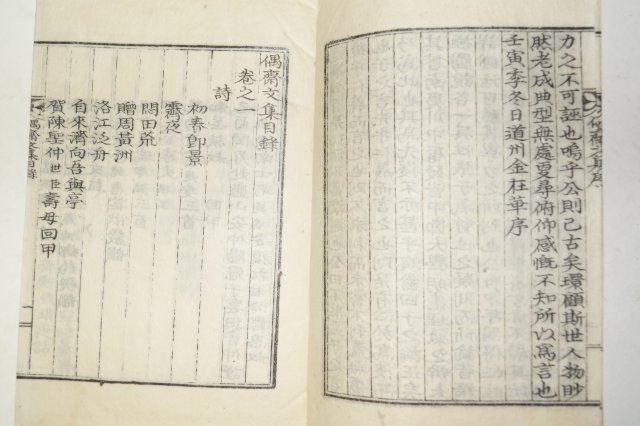 力之不可誣也嗚乎公則已古矣環顧斯世人物眇
然老成典型無處夏尋俯仰感慨不知所以寓言也
壬寅季冬日道州金在華序
偶齋文集序
偶齋文集目錄
卷之一
詩
初春卽景
霽夜
悶田荒
贈周黃洲
洛江泛舟
自來消向吾與亭
賀陳聖仲世臣壽母回甲
偶齋文集目錄